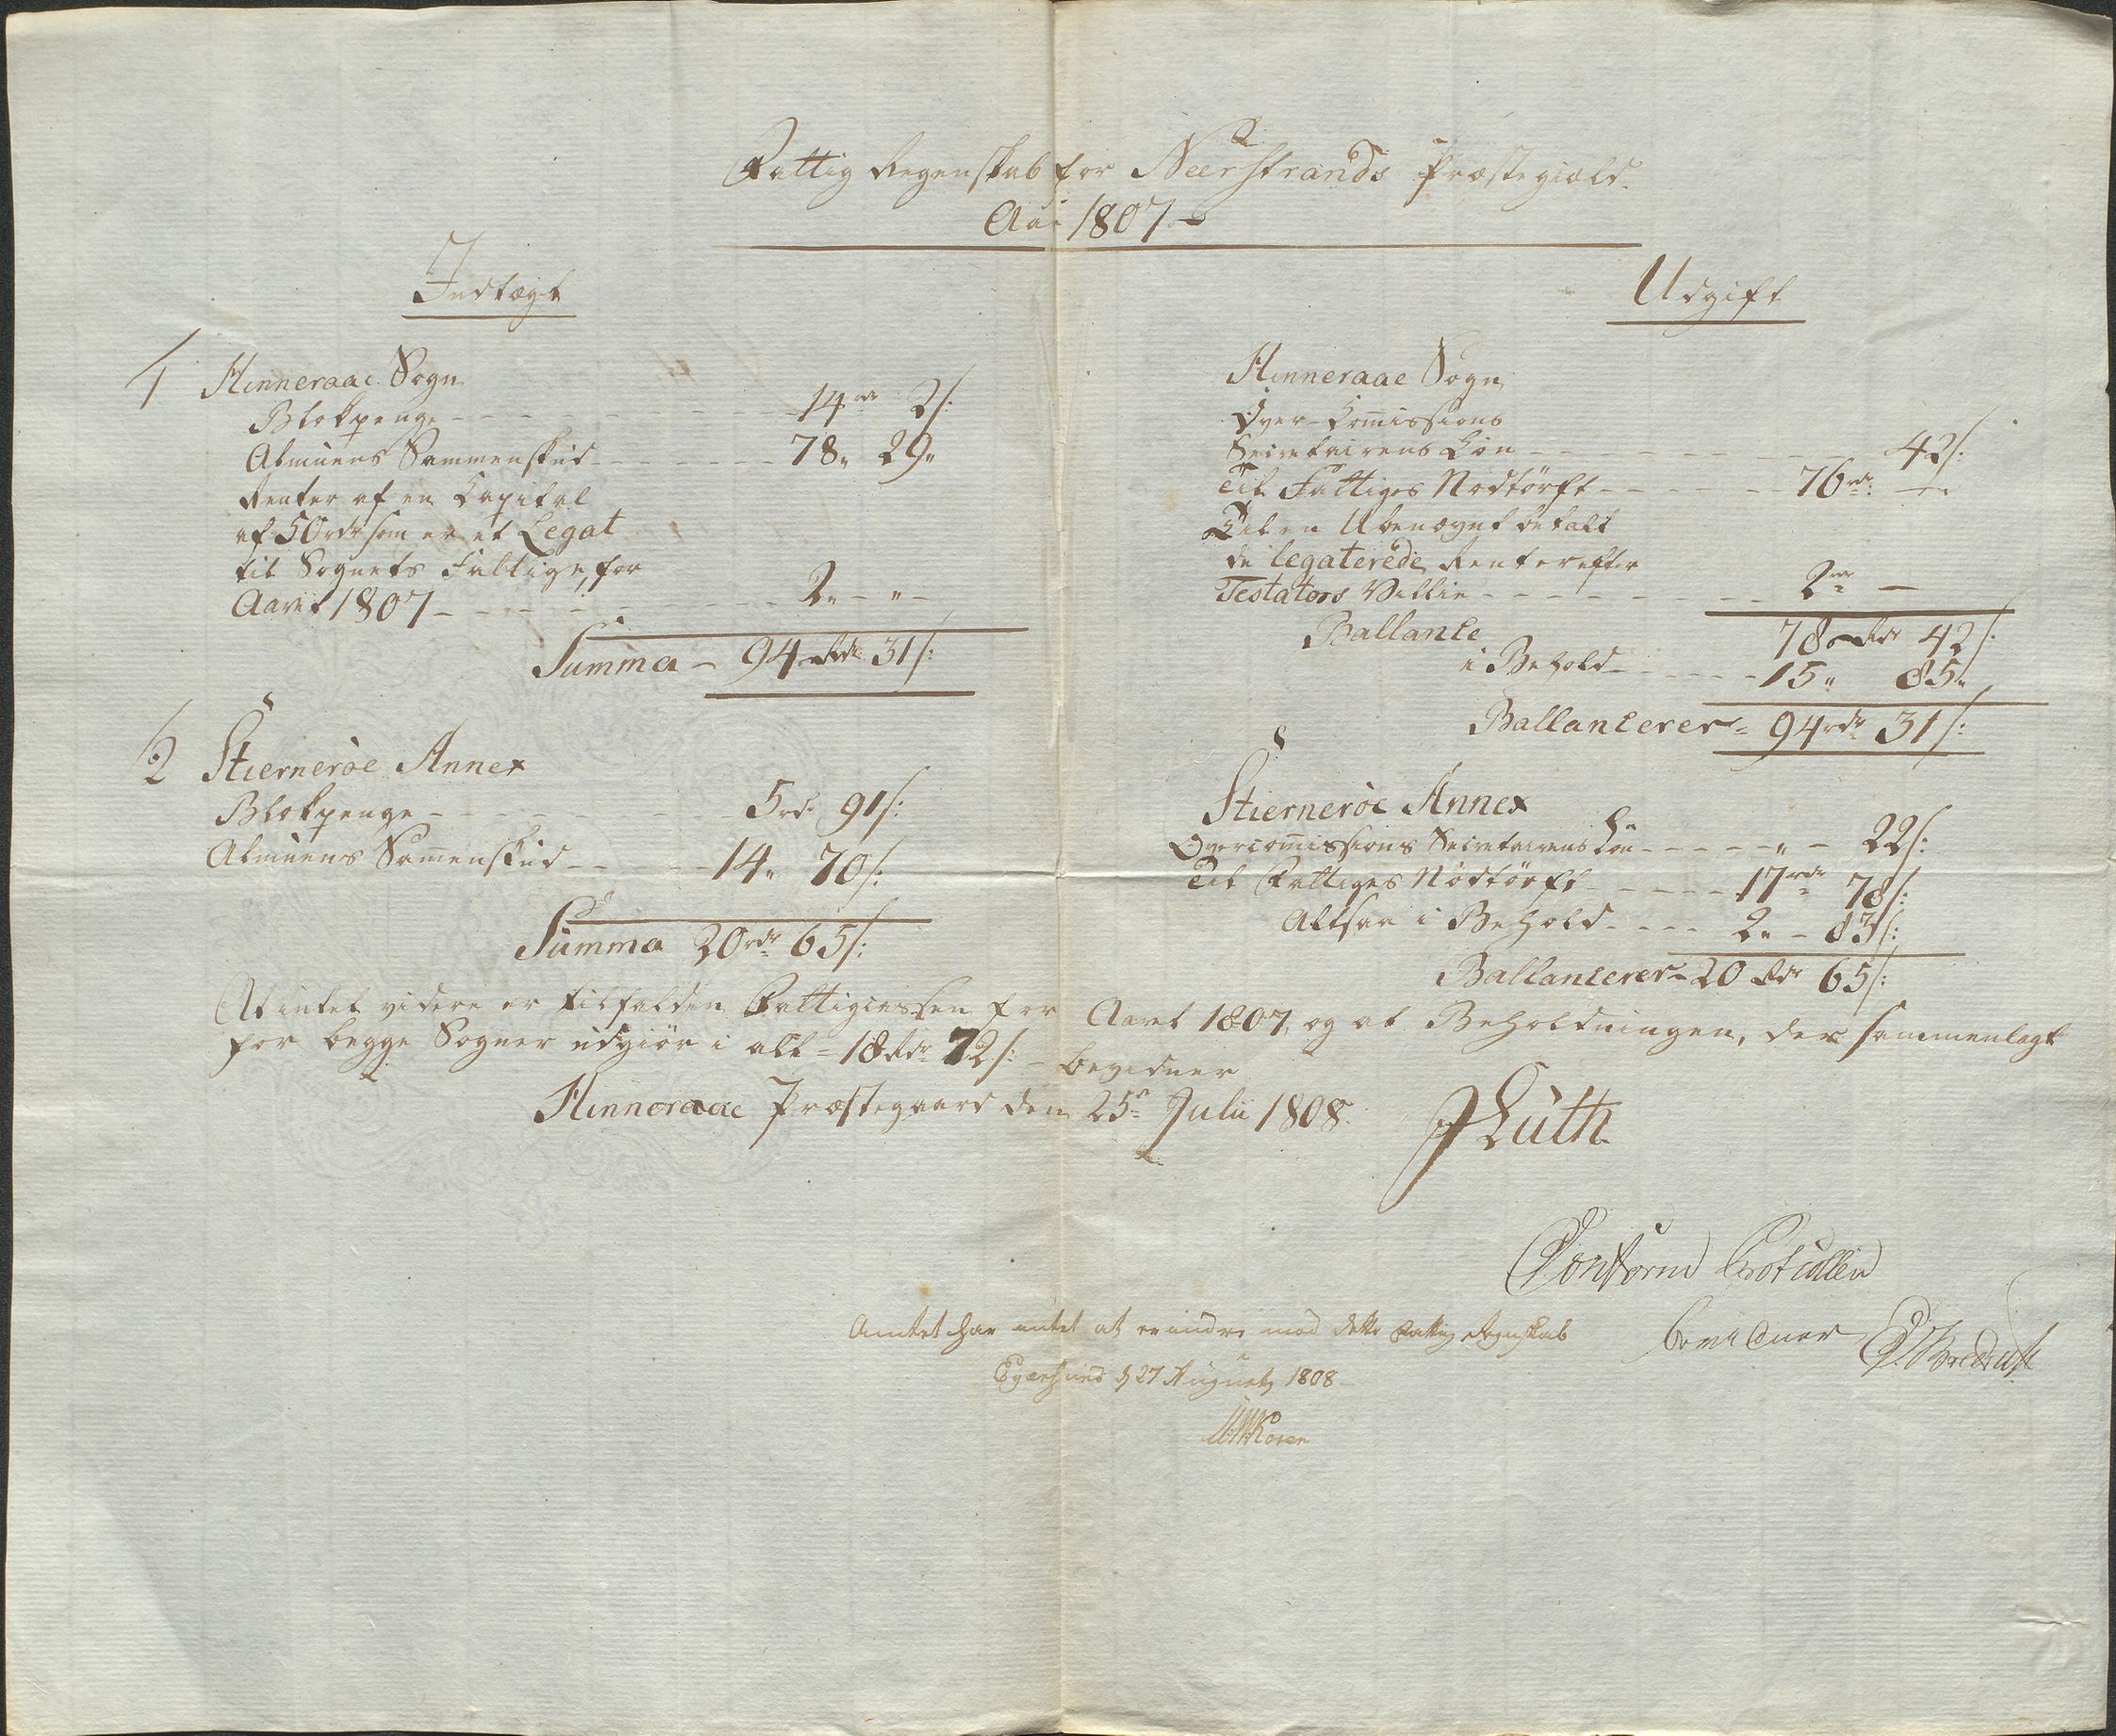 Fattig Regenskab for Neerstrands Præstegield.
Aar 1807
Indtægt
1 Hinneraae Sogn
Blokpenge - - - 14 rdr 2 s:
Almuens Sammenskud - - - 78 " 29 "
Renter af en Capital
af 50 rdr som er et Legat
til Sognets Fattige, for
Aaret 1807 - - - 2 " - " -
Summa - 94 Rdr 31 s:
2 Stiernerøe Annex
Blokpenge - - - 5 rdr 91 s:
Almuens Sam̄enskud - - - 14 " 70 s:
Summa 20 rdr 65 s:
Udgift
Hinneraae Sogn
Over-Com̄issions
Secretairens Løn - - - 42 s:
Til Fattiges Nødtørft - - - 76 rdr -"-
Til en Ubenævnt betalt
de legaterede Renter efter
Testators Villie - - - 2 rdr -
78 Rdr 42 s:
Ballance
i Behold - - - 15 " 85 "
Ballancerer = 94 rdr 31 s:
Stiernerøe Annex
Overcom̄issions Secretairens Løn - - - " - 22 s:
Til Fattiges Nødtørft - - - 17 rdr 78 s:
Altsaa i Behold - - - 2 " - 83 s:
Ballancerer - 20 Rdr 65 s:
At intet videre er tilfalden Fattigcassen for Aaret 1807, og at Beholdningen, der sammenlagt
for begge Sogner udgiør i alt = 18 Rdr 72 s: - bevidner
Hinneraae Præstegaard den 25de Julii 1808. J Luth
Conform Protcollen
bevidner
Amtet har intet at erindre mod dette Fattig Regnskab
Egersund d 27 August 1808 -
UWKoren